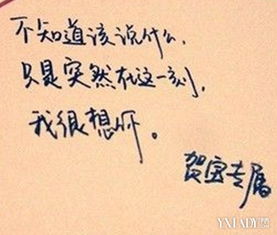 不知道该说什么，
只是突然在这一刻，
我很想你。
贺宝专属
YXLADY图